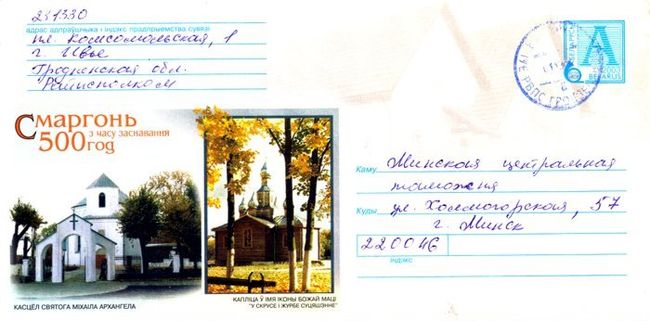 231330
адрас адпраўшчыка і індэкс прадпрыемства сувязі
пл. Комсомольская, 1
г. Ивье
Гродненская обл.
Райисполком
Смаргонь
500 год
з часу заснавання
А
BELARUS
Каму
Минская центральная
таможня
Куды
ул. Холмогорская, 57
г. Минск
220046
індэкс
КАСЦЁЛ СВЯТОГА МІХАІЛА АРХАНГЕЛА
КАПЛІЦА Ў ІМЯ ІКОНЫ БОЖАЙ МАЦІ
"У СКРУСЕ І ЖУРБЕ СУЦЯШЭННЕ"